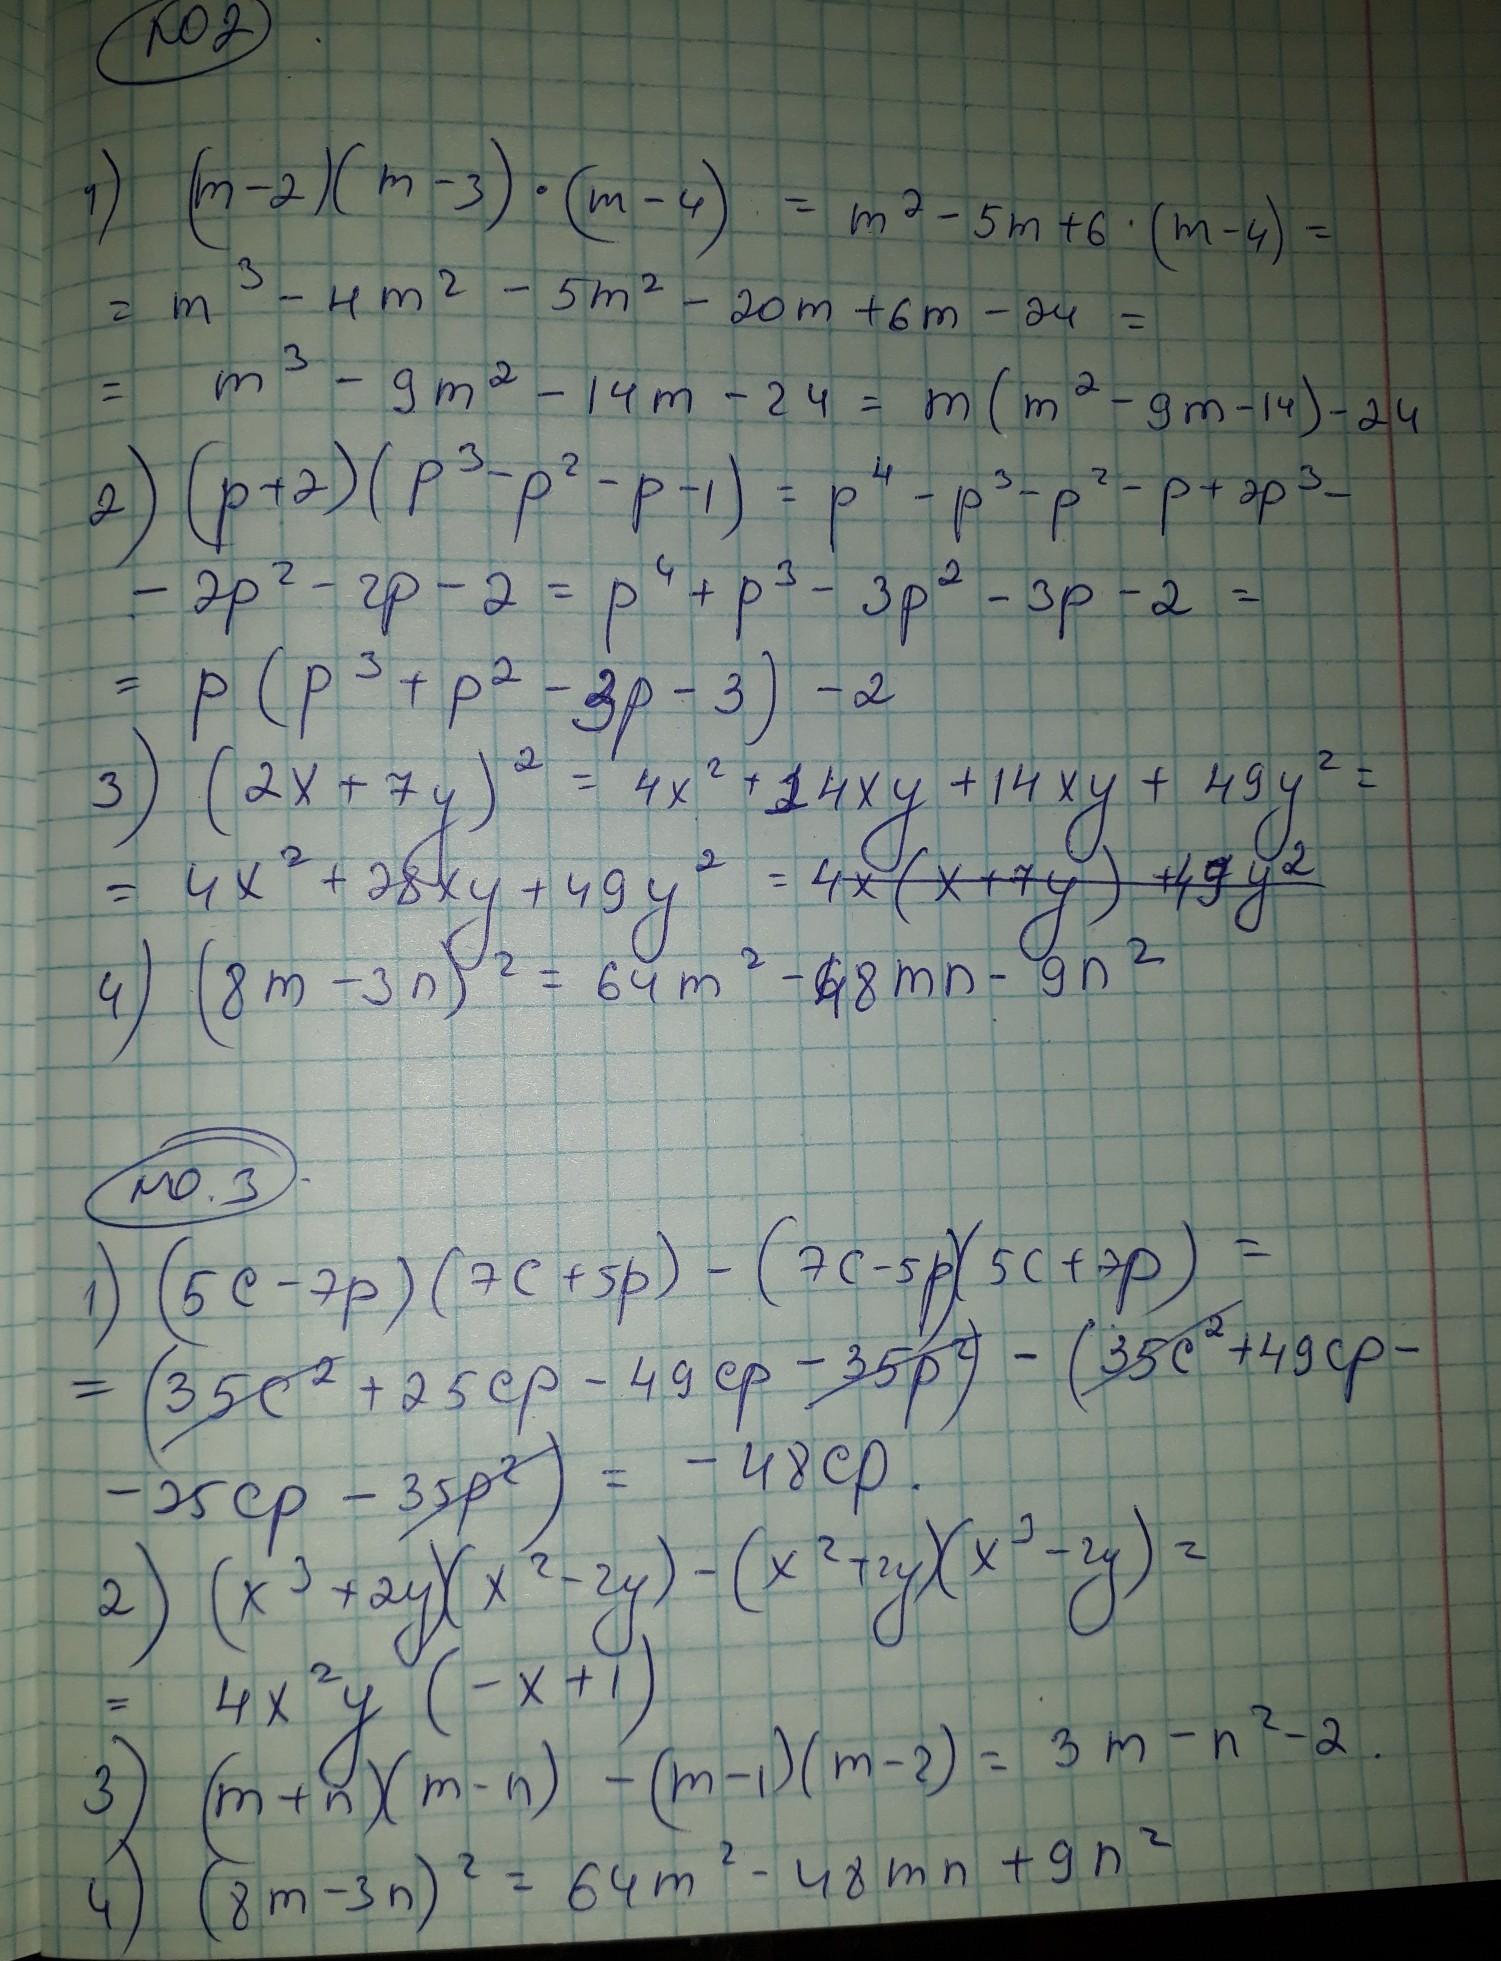 №2
1) (m-2)(m-3)·(m-4) = m²-5m+6·(m-4) =
= m³-4m²-5m²-20m+6m-24 =
= m³-9m²-14m-24 = m(m²-9m-14)-24
2) (p+2)(p³-p²-p-1) = p⁴-p³-p²-p+2p³-
-2p²-2p-2 = p⁴+p³-3p²-3p-2 =
= p(p³+p²-3p-3)-2
3) (2x+7y)² = 4x²+14xy+14xy+49y² =
= 4x²+28xy+49y² = 4x(x+7y)+49y²
4) (8m-3n)² = 64m²-48mn-9n²
№.3
1) (5c-7p)(7c+5p)-(7c-5p)(5c+7p) =
= (35c²+25cp-49cp-35p²)-(35c²+49cp-
-25cp-35p²) = -48cp.
2) (x³+2y)(x²-2y)-(x²+2y)(x³-2y) =
= 4x²y(-x+1)
3) (m+n)(m-n)-(m-1)(m-2) = 3m-n²-2.
4) (8m-3n)² = 64m²-48mn+9n²